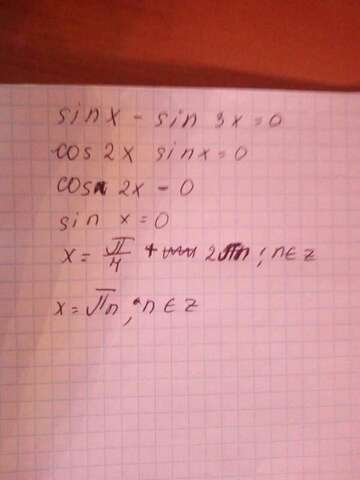 sin x - sin 3x = 0
cos 2x sin x = 0
cos 2x - 0
sin x = 0
x = π/4 + 2πn; n ∈ z
x = πn; n ∈ z